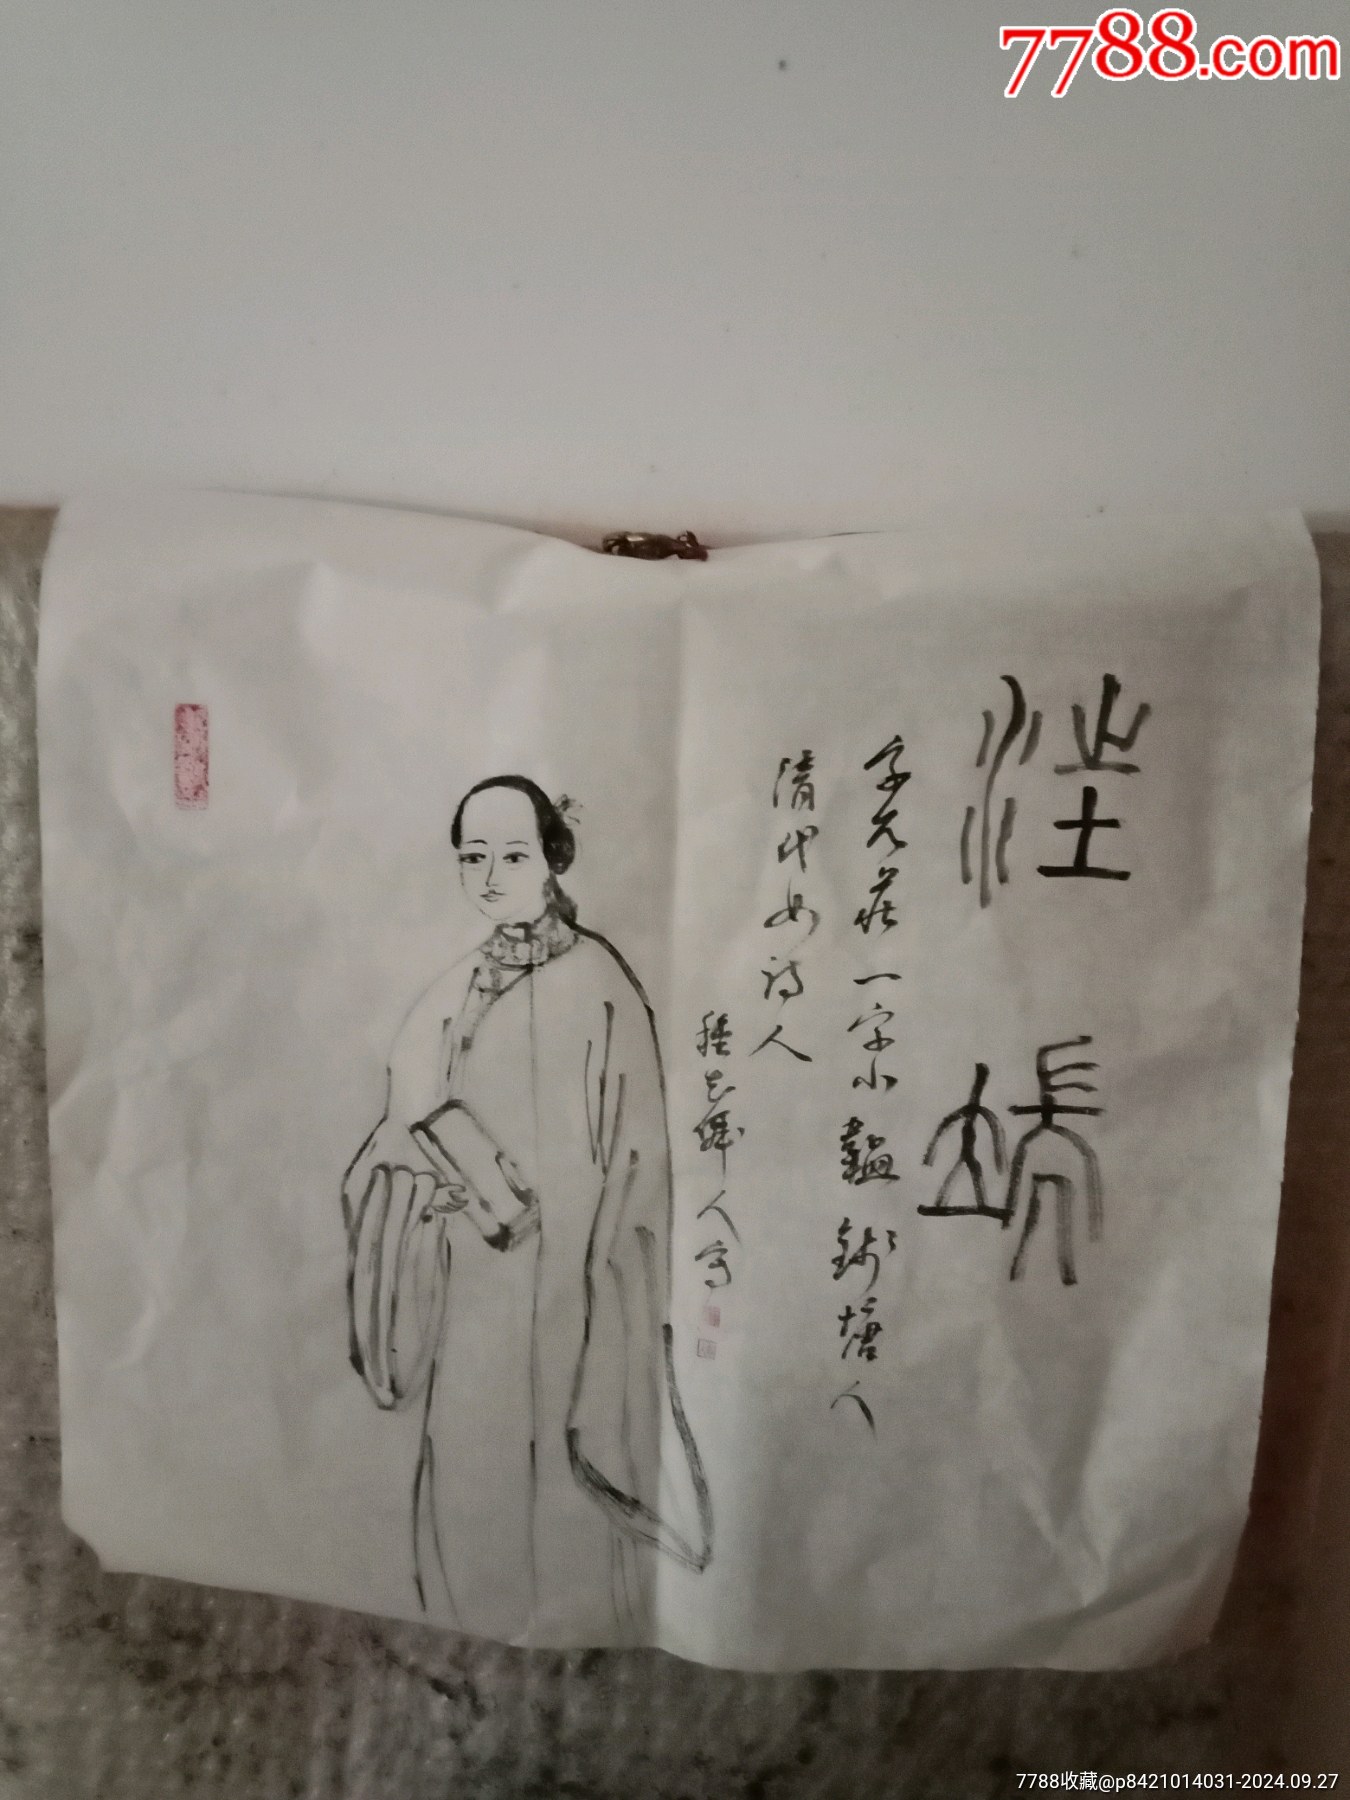 7788.com
汪端
字允莊一字小韞錢塘人
清代女诗人
人写
7788收藏@p8421014031-2024.09.27